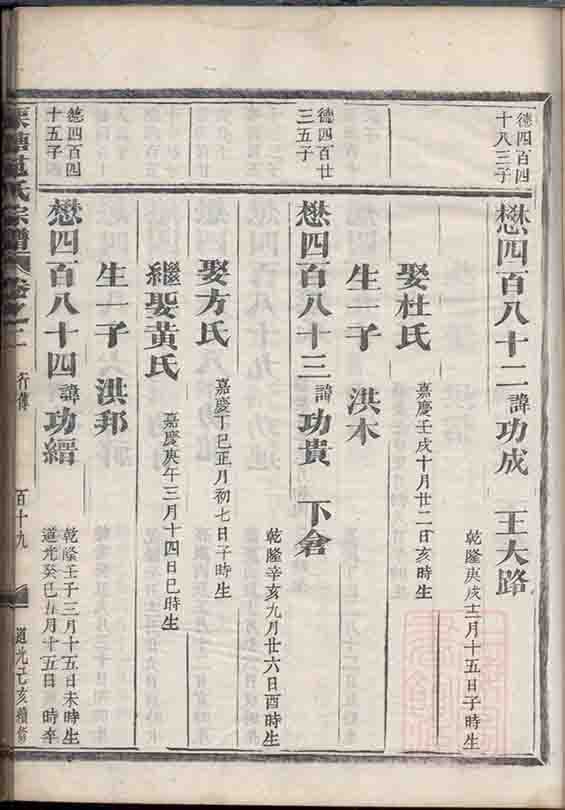 德四百四
十八三子
懋四百八十二 諱 功成 王大路
乾隆庚戌十二月十五日子時生
娶杜氏
嘉慶壬戌十月廿二日亥時生
生一子 洪木
德四百廿
三五子
懋四百八十三 諱 功貴 下倉
乾隆辛亥九月廿六日酉時生
娶方氏
嘉慶丁巳正月初七日子時生
繼娶黃氏
嘉慶庚午三月十四日巳時生
生一子 洪邦
德四百四
十五子
懋四百八十四 諱 功縉
乾隆壬子三月十五日未時生
道光癸巳五月十五日 時卒
氏宗譜 卷之二 行傳 百十九 道光己亥續脩